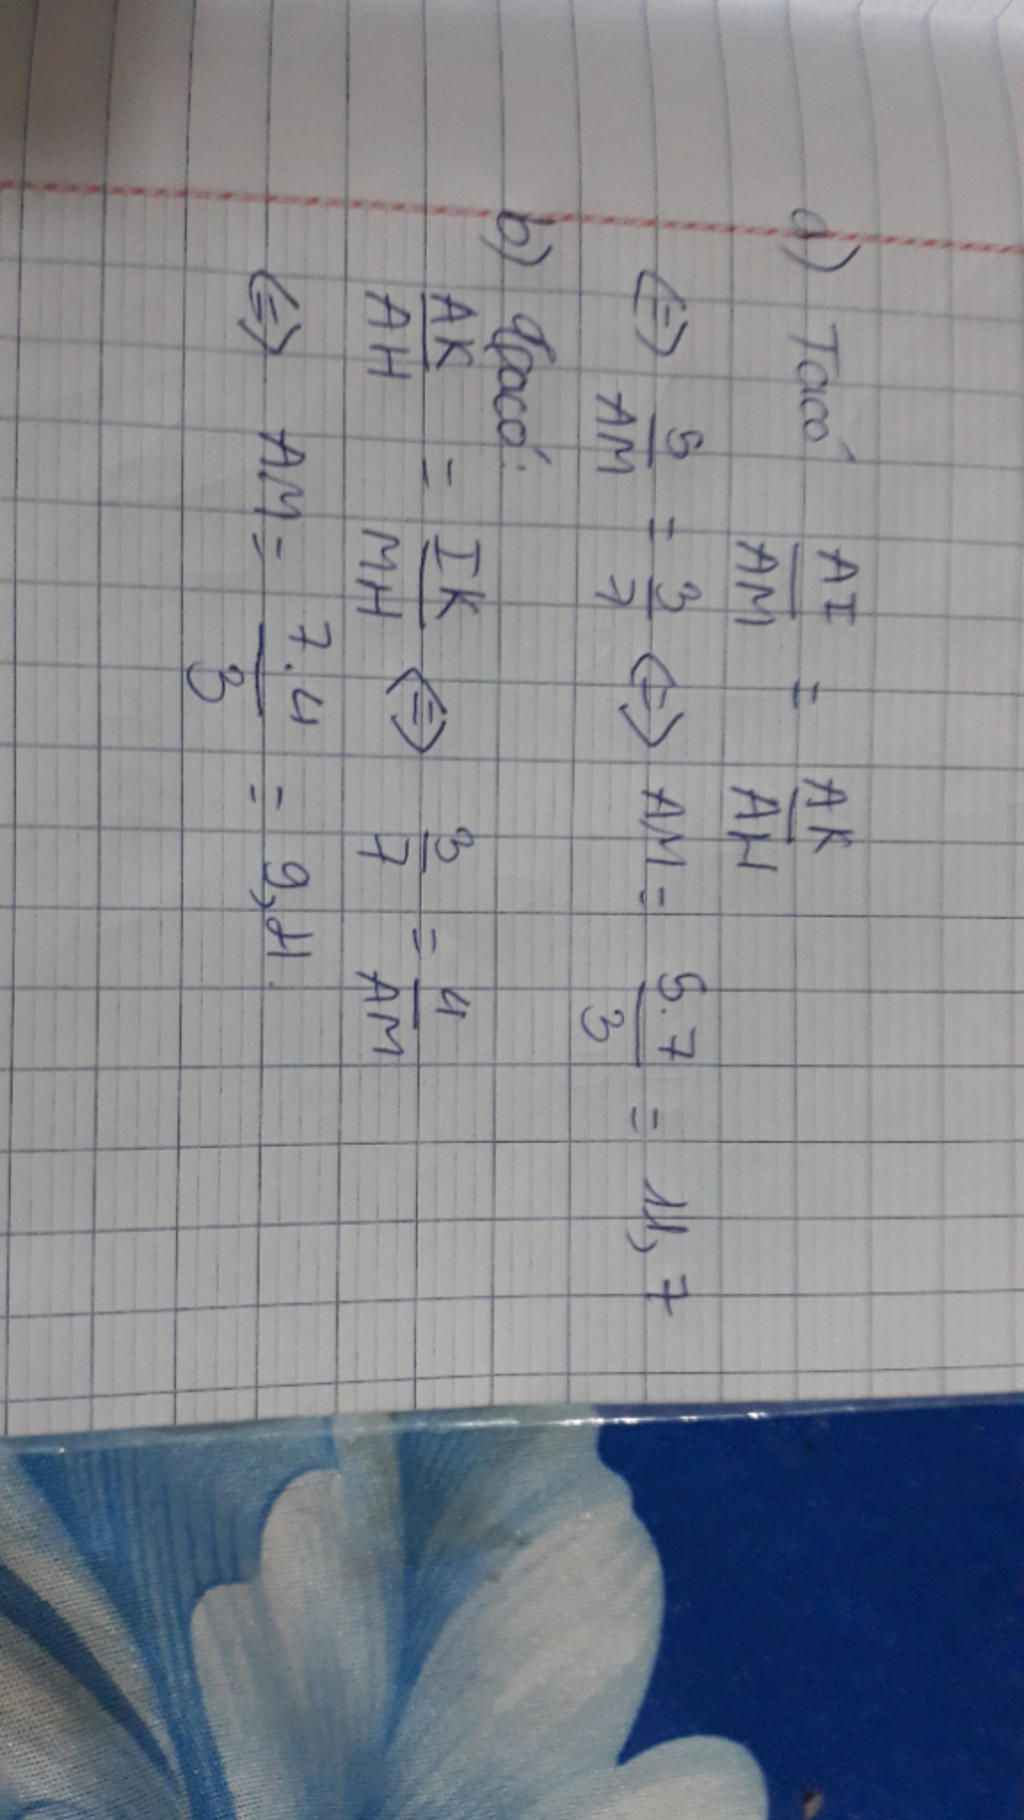 a) Ta có AI/AM = AK/AH
<=> 5/AM = 3/7 <=> AM = 5.7/3 = 11,7
b) Ta có:
AK/AH = IK/MH <=> 3/7 = 4/AM
<=> AM = 7.4/3 = 9,11